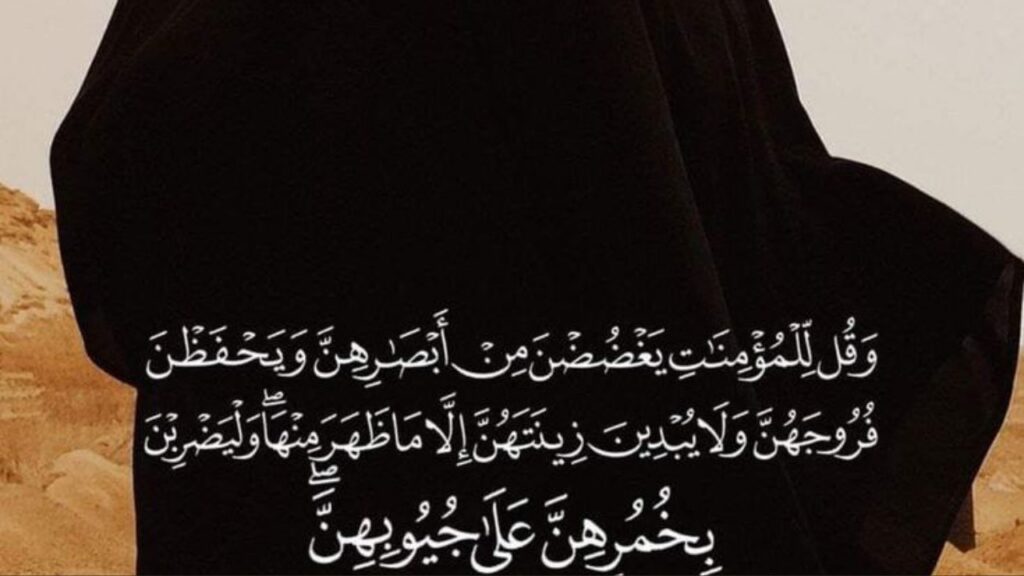 وَقُل لِّلْمُؤْمِنَٰتِ يَغْضُضْنَ مِنْ أَبْصَٰرِهِنَّ وَيَحْفَظْنَ
فُرُوجَهُنَّ وَلَا يُبْدِينَ زِينَتَهُنَّ إِلَّا مَا ظَهَرَ مِنْهَا ۖ وَلْيَضْرِبْنَ
بِخُمُرِهِنَّ عَلَىٰ جُيُوبِهِنَّ ۖ